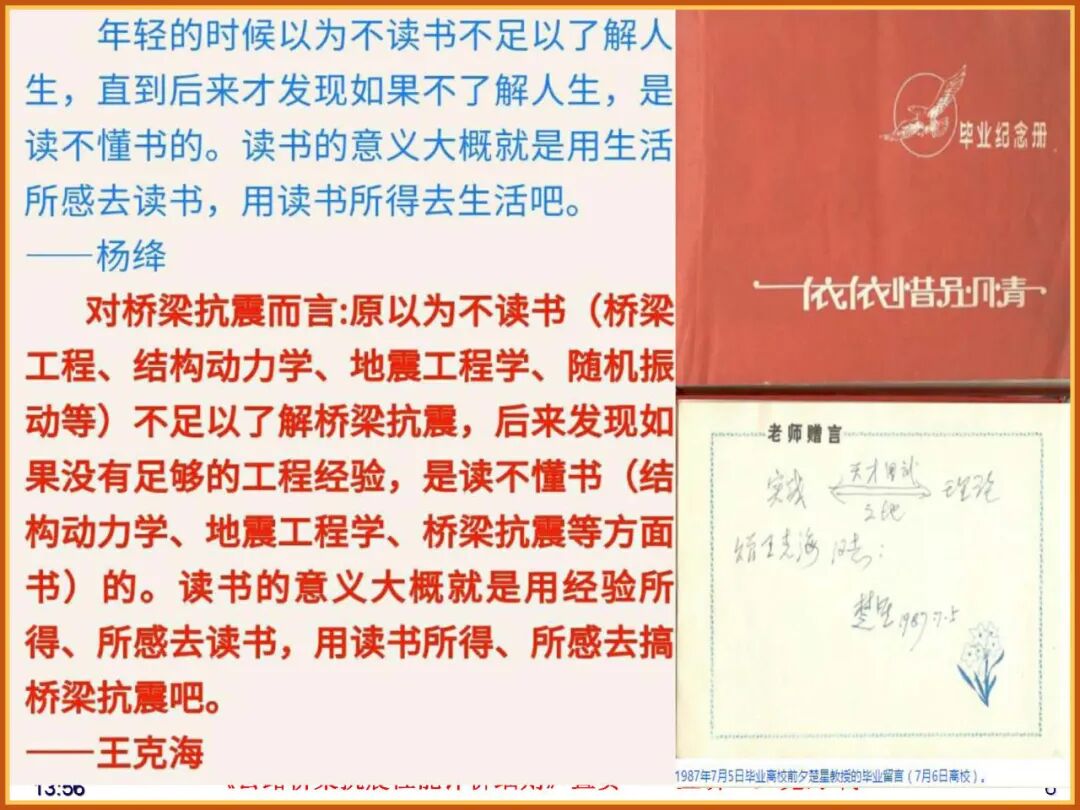 年轻的时候以为不读书不足以了解人
生，直到后来才发现如果不了解人生，是
读不懂书的。读书的意义大概就是用生活
所感去读书，用读书所得去生活吧。
——杨绛
对桥梁抗震而言:原以为不读书（桥梁
工程、结构动力学、地震工程学、随机振
动等）不足以了解桥梁抗震，后来发现如
果没有足够的工程经验，是读不懂书（结
构动力学、地震工程学、桥梁抗震等方面
书）的。读书的意义大概就是用经验所
得、所感去读书，用读书所得、所感去搞
桥梁抗震吧。
——王克海
毕业纪念册
依依惜别情
老师赠言
实践
理论
王克海
楚星 1987.7.5
1987年7月5日毕业离校前夕楚星教授的毕业留言（7月6日离校）。
13:56
6